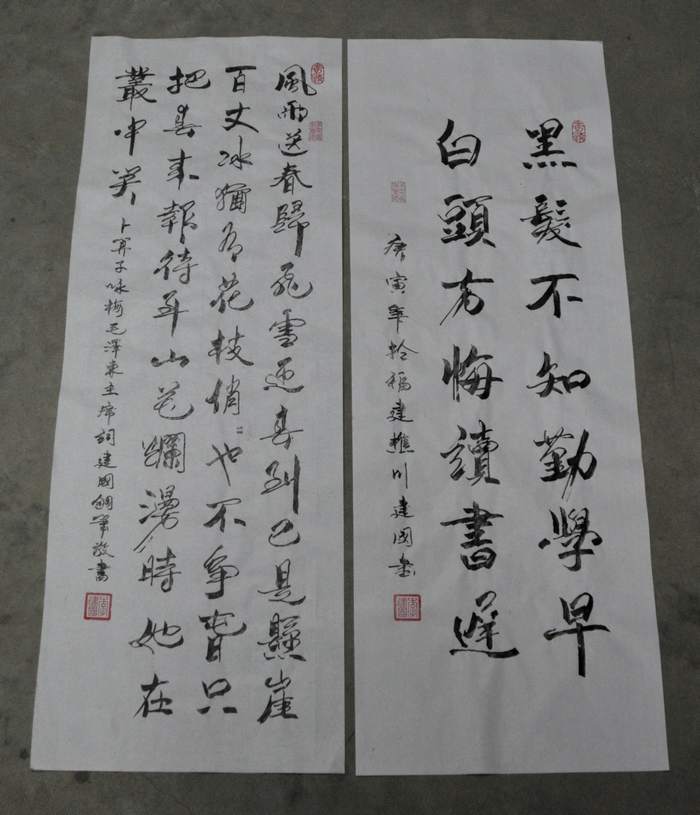 黑髮不知勤學早
白頭方悔讀書遲
庚寅年於福建樵川建國書
風雨送春歸飛雪迎春到已是懸崖
百丈冰猶有花枝俏俏也不爭春只
把春來報待到山花爛漫時她在
叢中笑
卜算子咏梅毛澤東主席詞建國筆敬書